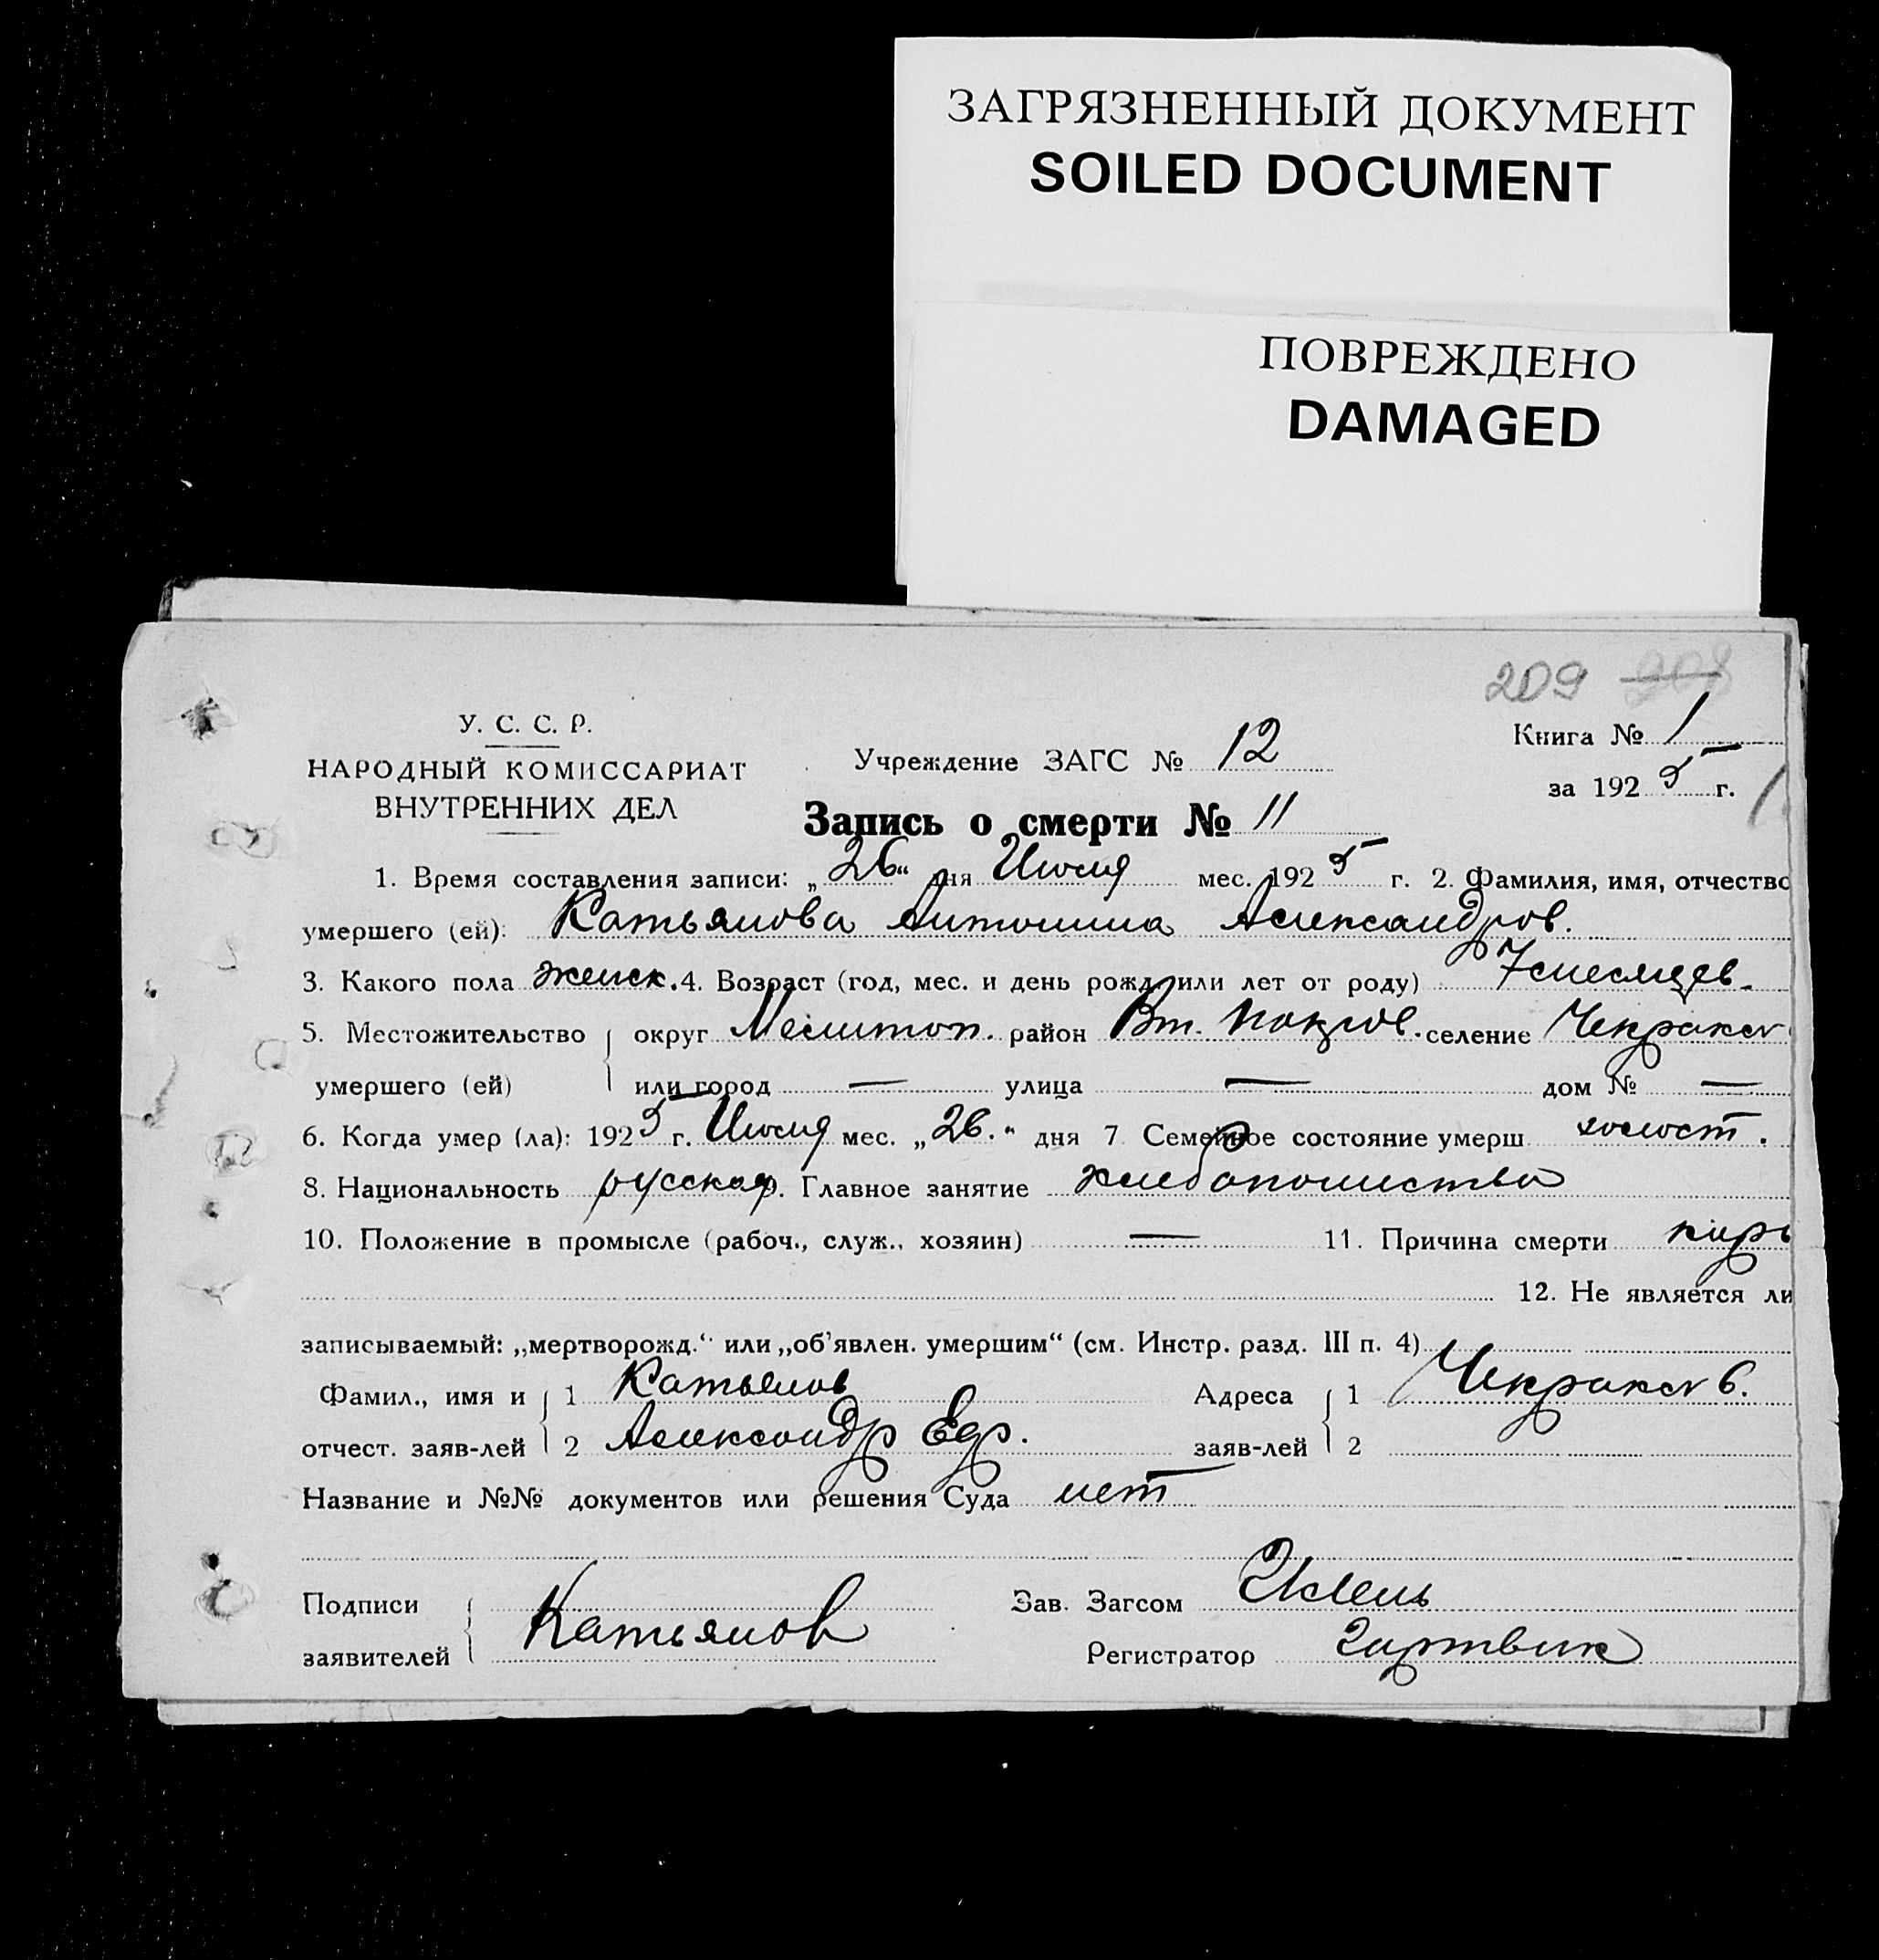 ЗАГРЯЗНЕННЫЙ ДОКУМЕНТ
SOILED DOCUMENT
ПОВРЕЖДЕНО
DAMAGED
209 208
У. С. С. Р.
НАРОДНЫЙ КОМИССАРИАТ
ВНУТРЕННИХ ДЕЛ
Учреждение ЗАГС № 12
Книга № 1
за 1925 г.
Запись о смерти № 11
1. Время составления записи: „26“ дня Июля мес. 1925 г. 2. Фамилия, имя, отчество
умершего (ей): Катьянова Антонина Александров.
3. Какого пола женск. 4. Возраст (год, мес. и день рожд. или лет от роду) 7 месяцев.
5. Местожительство округ Мелитоп. район Вт. Покров. селение Чекракст
умершего (ей) или город — улица — дом № —
6. Когда умер (ла): 1925 г. Июля мес. „26.“ дня 7 Семейное состояние умерш холост.
8. Национальность русская 9. Главное занятие хлебопашество
10. Положение в промысле (рабоч., служ., хозяин) — 11. Причина смерти
12. Не является ли
записываемый: „мертворожд.“ или „об'явлен. умершим“ (см. Инстр. разд. III п. 4)
Фамил., имя и 1 Катьянов Адреса 1
отчест. заяв-лей 2 Александр Егр. заяв-лей 2
Название и №№ документов или решения Суда нет
Подписи Зав. Загсом
Катьянов
заявителей Регистратор Гартвик